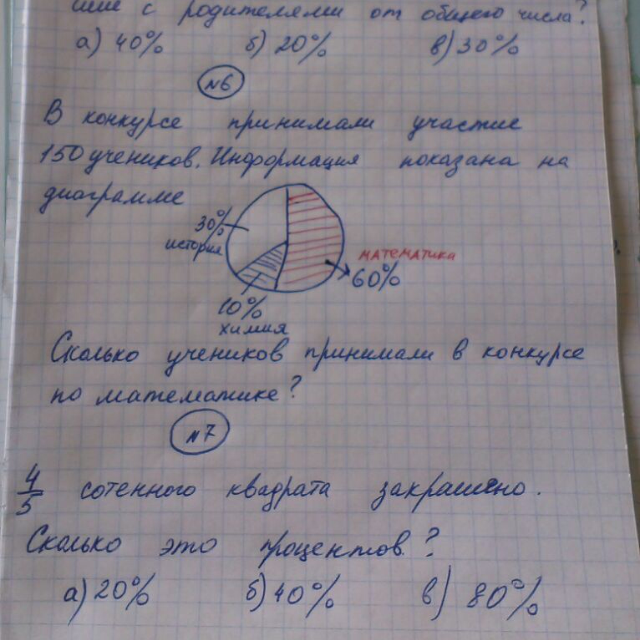 шие с родителями от общего числа?
а) 40% б) 20% в) 30%
№6
В конкурсе принимали участие
150 учеников. Информация показана на
диаграмме
30%
история
математика
60%
10%
химия
Сколько учеников принимали в конкурсе
по математике?
№7
4/5 сотенного квадрата закрашено.
Сколько это процентов?
а) 20% б) 40% в) 80%